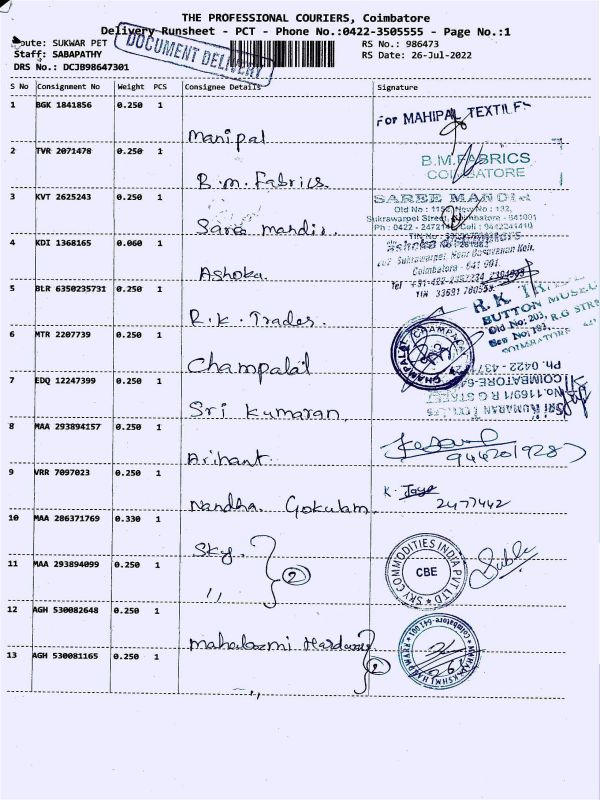 THE PROFESSIONAL COURIERS, Coimbatore
Delivery Runsheet - PCT - Phone No.:0422-3505555 - Page No.:1
Route: SUKWAR PET
RS No.: 986473
Staff: SABAPATHY
RS Date: 26-Jul-2022
DRS No.: DCJB98647301
DOCUMENT DELIVERY
S No Consignment No Weight PCS Consignee Details Signature
1 BGK 1841856 0.250 1
For MAHIPAL TEXTILES
Manipal
2 TVR 2071478 0.250 1
B.M.FABRICS
COIMBATORE
B.M. Fabrics.
3 KVT 2625243 0.250 1
SAREE MANDI
Old No : 115 New No : 132,
Sukrawarpet Street, Coimbatore - 641001
Ph : 0422 - 24721 Cell : 9842241410
Saree mandir.
4 KDI 1368165 0.060 1
Coimbatore - 641 001.
Ashoka.
5 BLR 6350235731 0.250 1
TIN 33691780559
R.K.
BUTTON MUSEUM
Old No: 203, R.G STR
New No: 193,
COIMBATORE
R.K. Trades.
6 MTR 2207739 0.250 1
CHAMPALAL CHAMPALAL
Champalal
7 EDQ 12247399 0.250 1
Ph. 0422 - 437
COIMBATORE-64
No.1169/1 R G STREET
SRI KUMARAN TEXTILES
Sri Kumaran
8 MAA 293894157 0.250 1
944201928
Arihant
9 VRR 7097023 0.250 1
K. Jaya
2477442
Nandha Gokulam
10 MAA 286371769 0.330 1
Sky. 2
SKY COMMODITIES INDIA PVT LTD
CBE
11 MAA 293894099 0.250 1
,,
12 AGH 530082648 0.250 1
Mahalaxmi Hardware 2
MAHALAKSHMI HARDWARE Coimbatore-641 001
13 AGH 530081165 0.250 1
,,